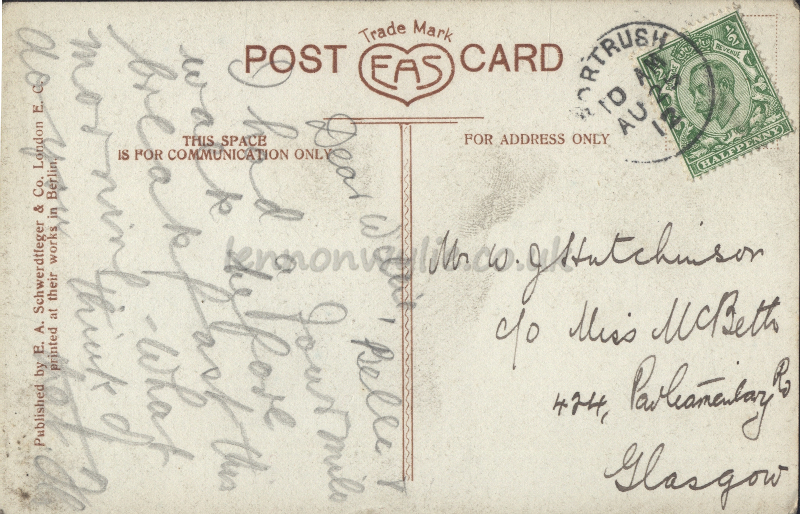 POST CARD
Trade Mark
EAS
THIS SPACE
IS FOR COMMUNICATION ONLY
FOR ADDRESS ONLY
PORTRUSH
10 AM
AU 24
12
REVENUE
HALFPENNY
Dear Willie, Belle &
I had a four mile
walk before
breakfast this
morning - What
do you think of
Mr W. J Hutchinson
c/o Miss McBeth
424, Parliamentary Rd
Glasgow
Published by E. A. Schwerdtfeger & Co. London E. C.
printed at their works in Berlin.
lennonwylie.co.uk